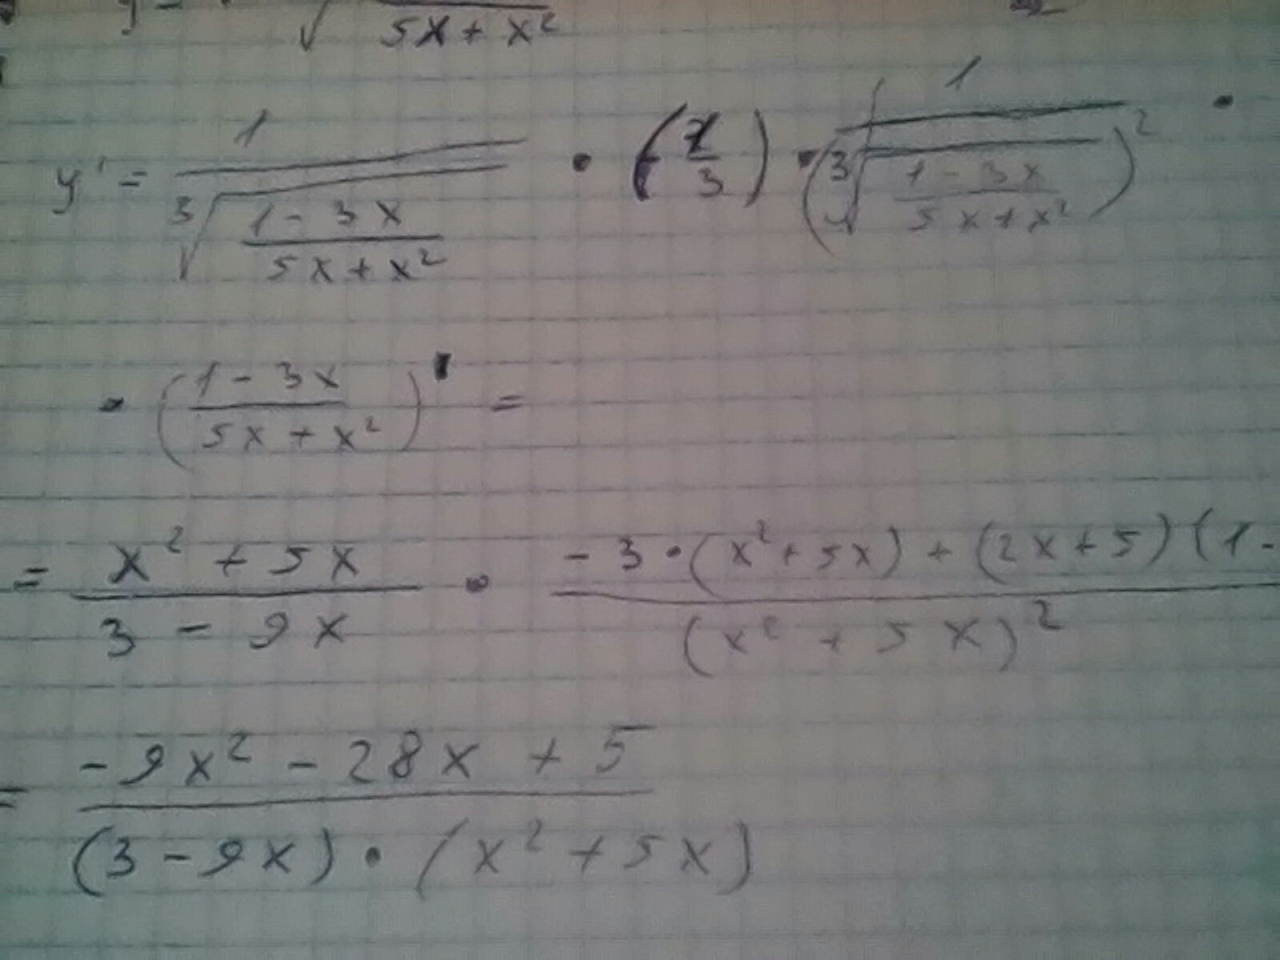 √ 5x + x²
y' = 1 / ∛((1 - 3x) / (5x + x²)) · (1/3) · 1 / (∛((1 - 3x) / (5x + x²)))² ·
· ((1 - 3x) / (5x + x²))' =
= (x² + 5x) / (3 - 9x) · (-3 · (x² + 5x) + (2x + 5)(1 -) / (x² + 5x)²
= (-9x² - 28x + 5) / ((3 - 9x) · (x² + 5x))